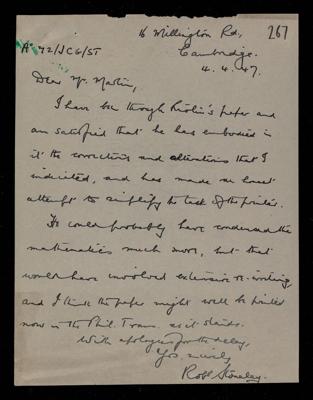 16 Millington Rd,
Cambridge.
267
A 72/JCG/ST
4.4.47.
Dear Mr. Martin,
I have been through 's paper and
am satisfied that he has embodied in
it the corrections and alterations that I
indicated, and has made an honest
attempt to simplify the task of the printer.
He could probably have condensed the
mathematics much more, but that
would have involved extensive re-writing,
and I think the paper might well be printed
now in the Phil. Trans. as it stands.
With apologies for the delay,
Yrs. sincerely,
Robt Stoneley.